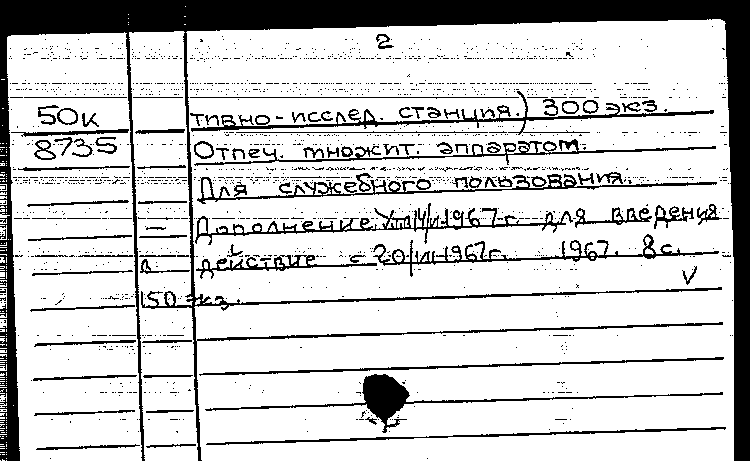 2
50к тивно-исслед. станция.) 300 экз.
8735 Отпеч. множит. аппаратом.
Для служебного пользования.
— Дополнение. Утв. 14/VI-1967 г. для введения
в действие с 20/VII-1967г. 1967. 8 с.
150 экз. V